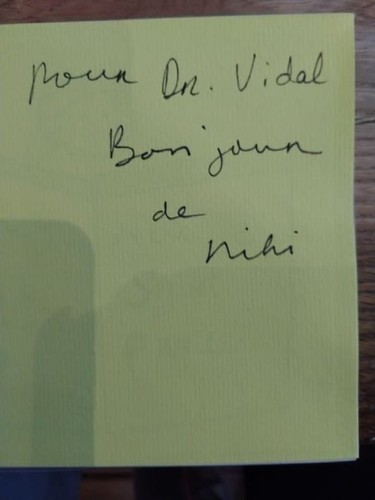 pour Dr. Vidal
Bonjour
de
Niki